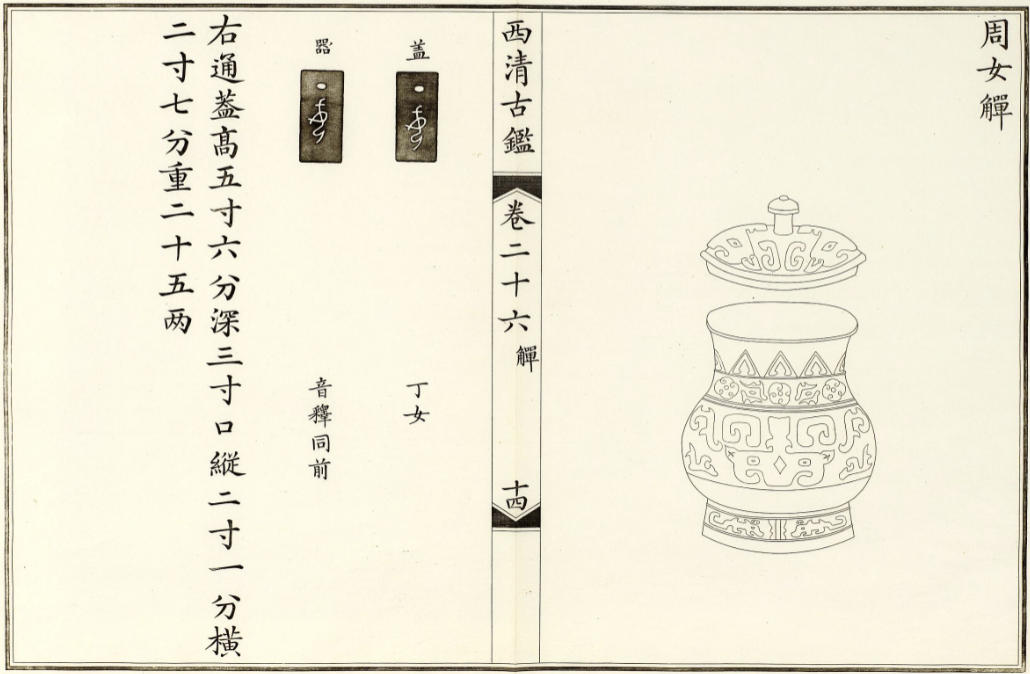 周女觶
西清古鑑
卷二十六
觶
十四
蓋
丁女
器
音釋同前
右通葢髙五寸六分深三寸口縱二寸一分橫
二寸七分重二十五两